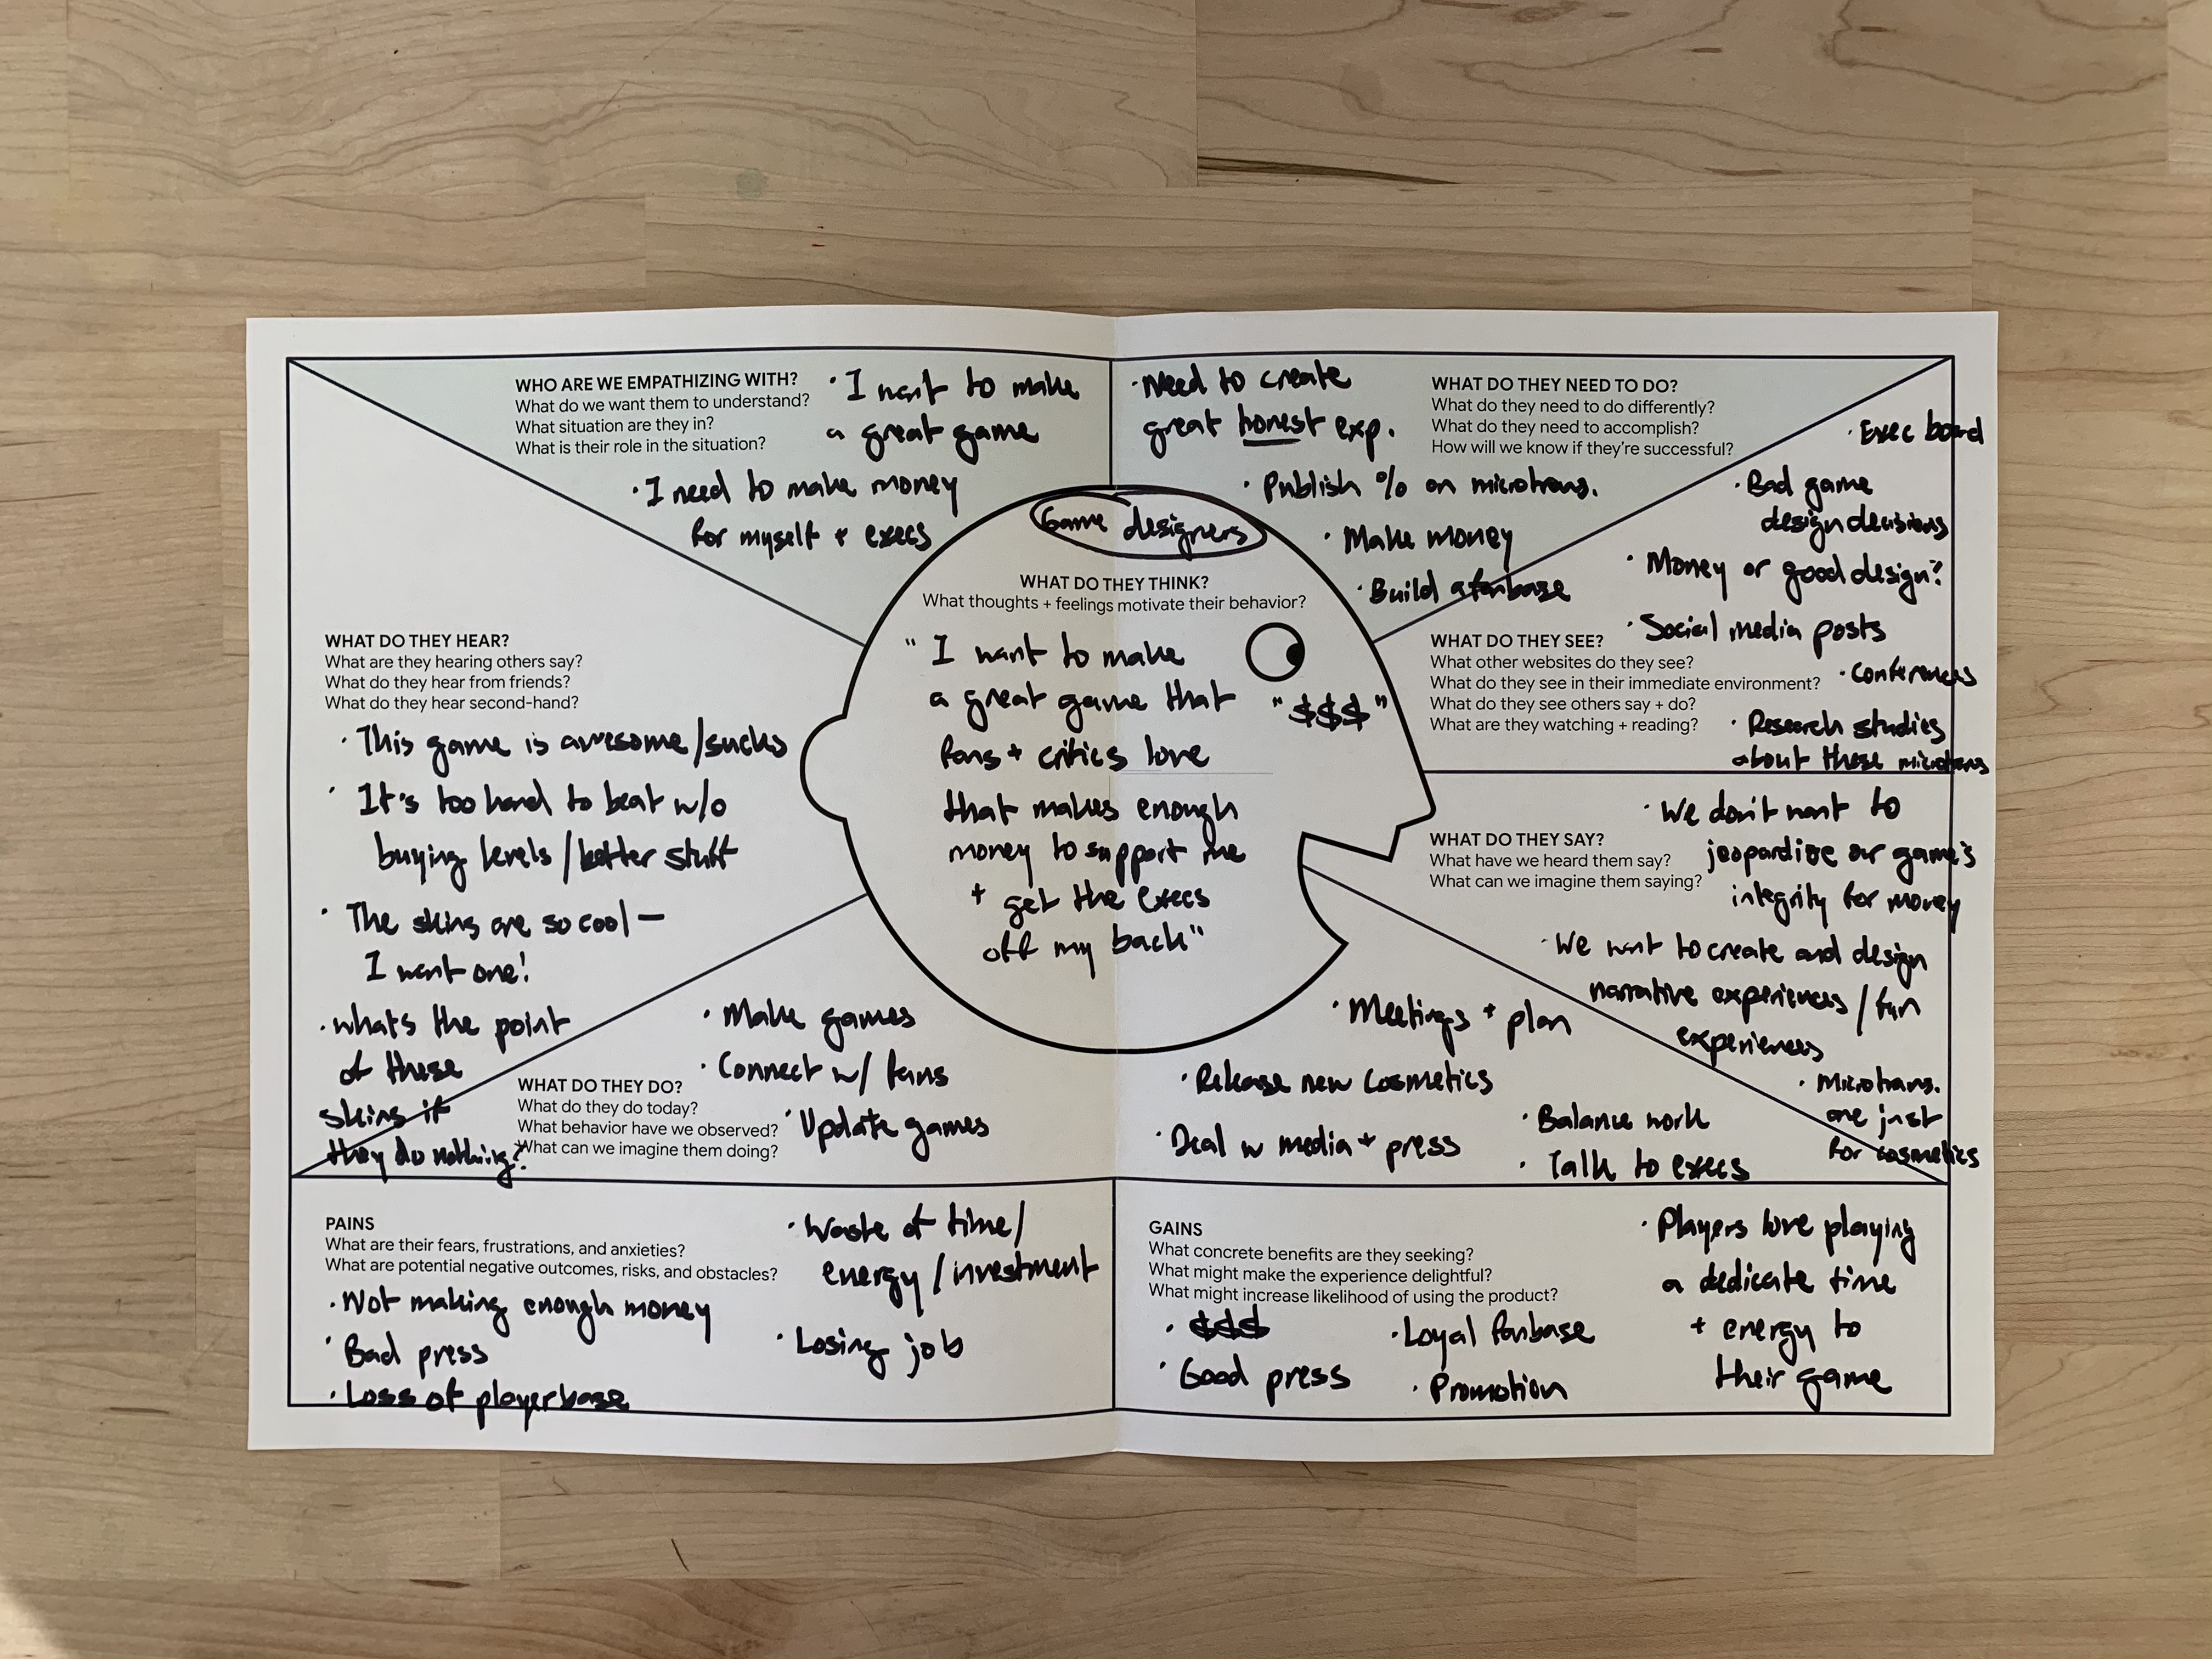 WHO ARE WE EMPATHIZING WITH?
What do we want them to understand?
What situation are they in?
What is their role in the situation?
· I want to make
a great game
· I need to make money
for myself + execs
· Need to create
great honest exp.
· Publish % on microtrans.
· Make money
· Build a fanbase
WHAT DO THEY NEED TO DO?
What do they need to do differently?
What do they need to accomplish?
How will we know if they're successful?
Game designers
WHAT DO THEY THINK?
What thoughts + feelings motivate their behavior?
"I want to make
a great game that
fans + critics love
that makes enough
money to support me
+ get the execs
off my back"
"$$$"
· Exec board
· Bad game
design decisions
· Money or good design?
· Social media posts
WHAT DO THEY SEE?
What other websites do they see?
What do they see in their immediate environment?
What do they see others say + do?
What are they watching + reading?
· Conferences
· Research studies
about these microtrans
WHAT DO THEY HEAR?
What are they hearing others say?
What do they hear from friends?
What do they hear second-hand?
· This game is awesome/sucks
· It's too hard to beat w/o
buying levels/better stuff
· The skins are so cool —
I want one!
· whats the point
of these
skins if
they do nothing?
WHAT DO THEY SAY?
What have we heard them say?
What can we imagine them saying?
· We don't want to
jeopardize our game's
integrity for money
· We want to create and design
narrative experiences/fun
experiences
· Microtrans.
are just
for cosmetics
WHAT DO THEY DO?
What do they do today?
What behavior have we observed?
What can we imagine them doing?
· Make games
· Connect w/ fans
· Update games
· Meetings + plan
· Release new cosmetics
· Deal w media + press
· Balance work
· Talk to execs
PAINS
What are their fears, frustrations, and anxieties?
What are potential negative outcomes, risks, and obstacles?
· Not making enough money
· Bad press
· Loss of playerbase
· Waste of time/
energy/investment
· Losing job
GAINS
What concrete benefits are they seeking?
What might make the experience delightful?
What might increase likelihood of using the product?
· $$$
· Good press
· Loyal fanbase
· Promotion
· Players love playing
a dedicate time
+ energy to
their game